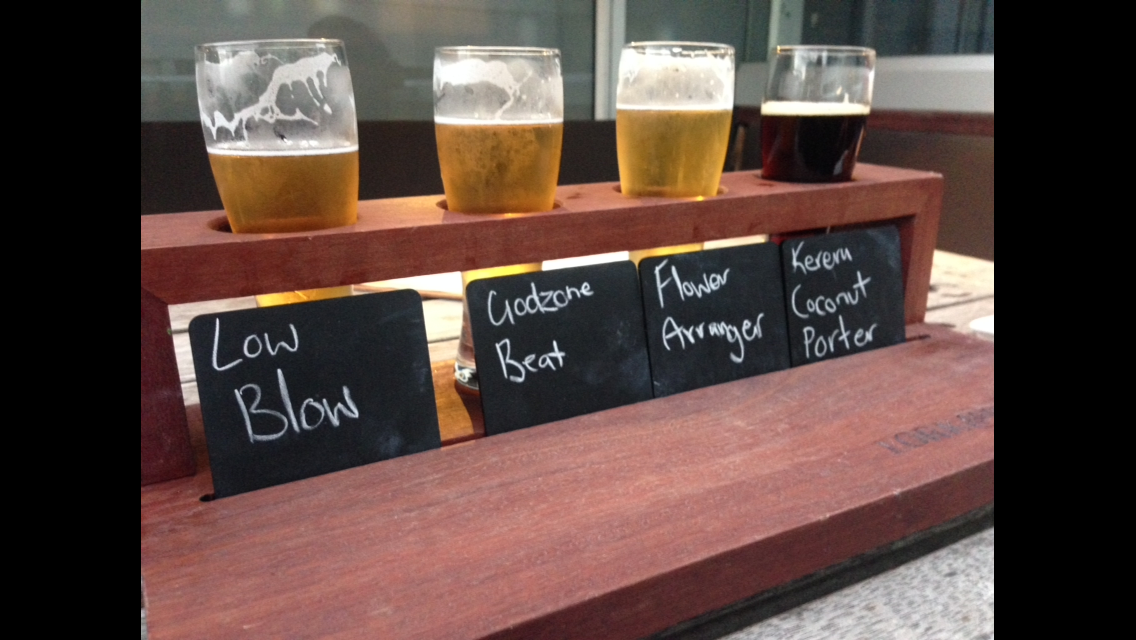 Low
Blow
Godzone
Beat
Flower
Arranger
Kereru
Coconut
Porter